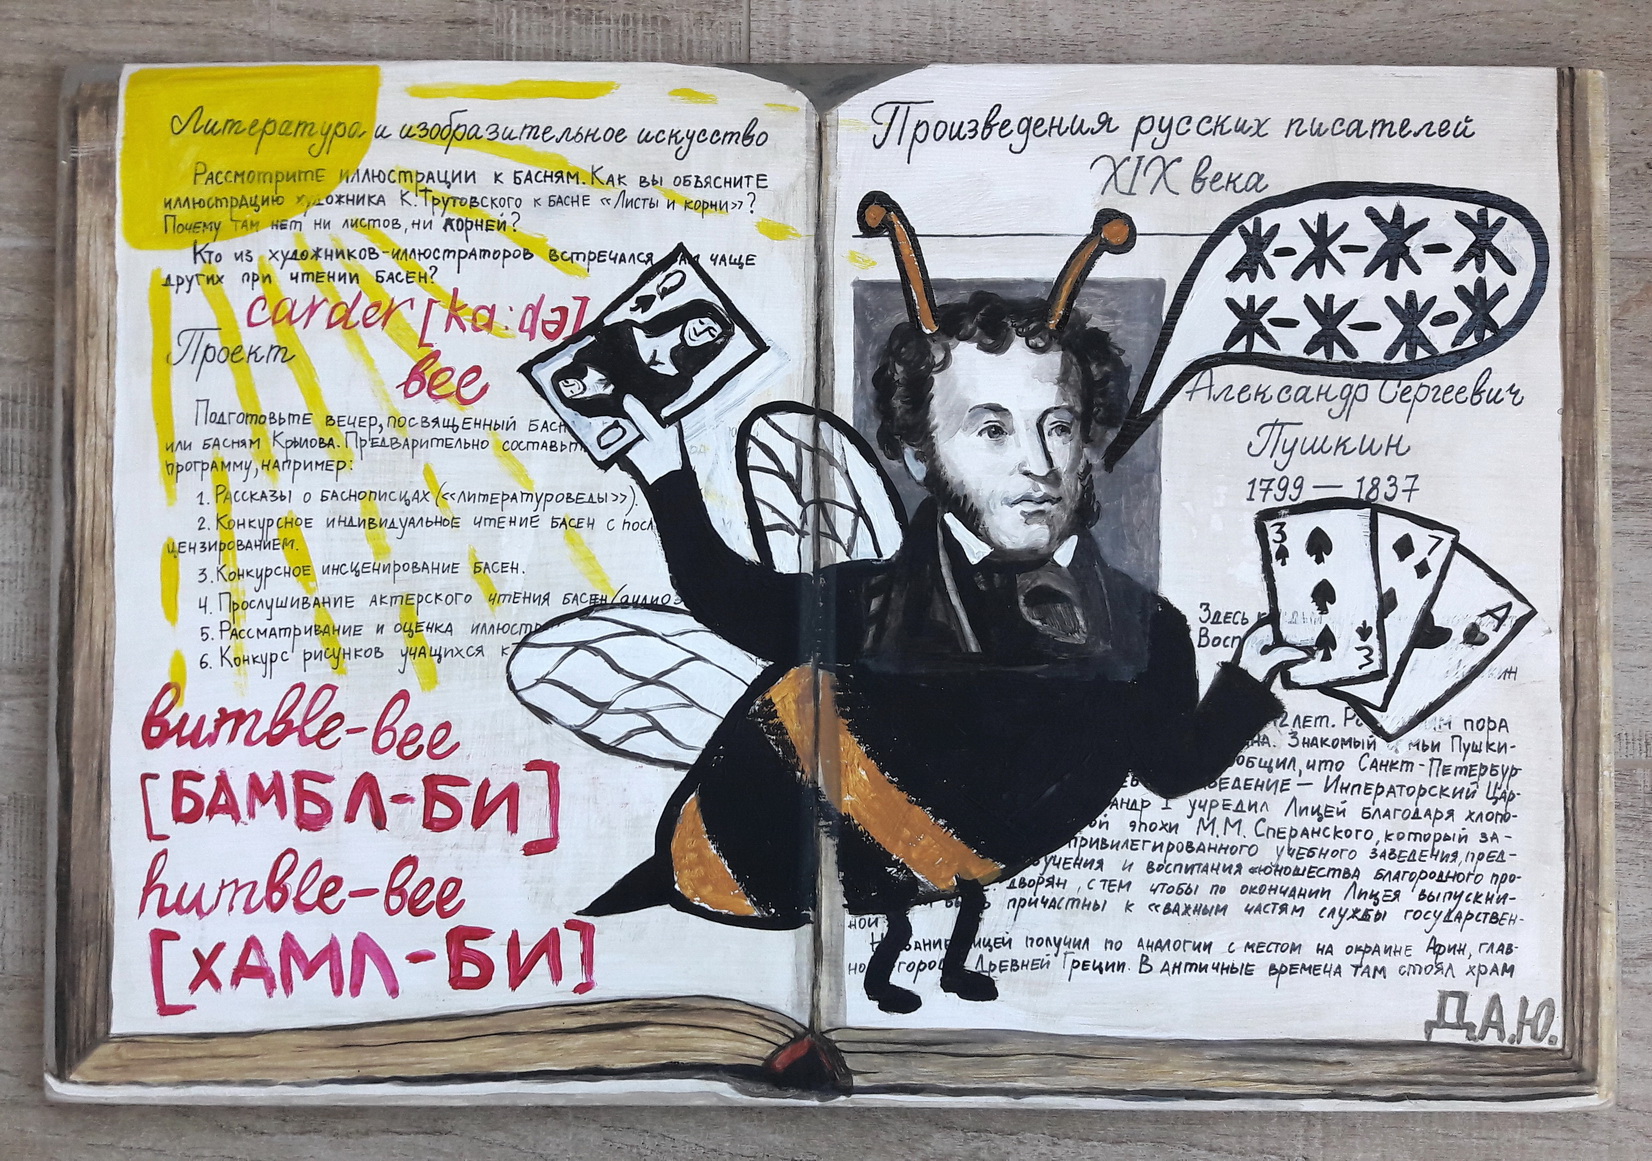 Литература и изобразительное искусство
Рассмотрите иллюстрации к басням. Как вы объясните
иллюстрацию художника К. Трутовского к басне «Листы и корни»?
Почему там нет ни листов, ни корней?
Кто из художников-иллюстраторов встречался чаще
других при чтении басен?
carder [ka:də]
Проект
bee
Подготовьте вечер, посвященный
или басням Крылова. Предварительно составьте
программу, например:
1. Рассказы о баснописцах («литературоведы»).
2. Конкурсное индивидуальное чтение басен с
цензированием.
3. Конкурсное инсценирование басен.
4. Прослушивание актерского чтения басен
5. Рассматривание и оценка
6. Конкурс рисунков учащихся к
bumble-bee
[БАМБЛ-БИ]
humble-bee
[ХАМЛ-БИ]
Произведения русских писателей
XIX века
Ж-Ж-Ж-Ж
Ж-Ж-Ж Ж
Александр Сергеевич
Пушкин
1799 — 1837
3
7
A
3
Здесь
лет. пора
Знакомый Пушки-
что Санкт-Петербур
— Императорский Цар-
I учредил Лицей благодаря хлопо-
эпохи М.М. Сперанского, который за-
привилегированного учебного заведения, пред-
и воспитания «юношества благородного про-
дворян, с тем чтобы по окончании Лицея выпускни-
причастны к «важным частям службы государствен-
ной
Название Лицей получил по аналогии с местом на окраине Афин, глав-
Древней Греции. В античные времена там стоял храм
Д.А.Ю.